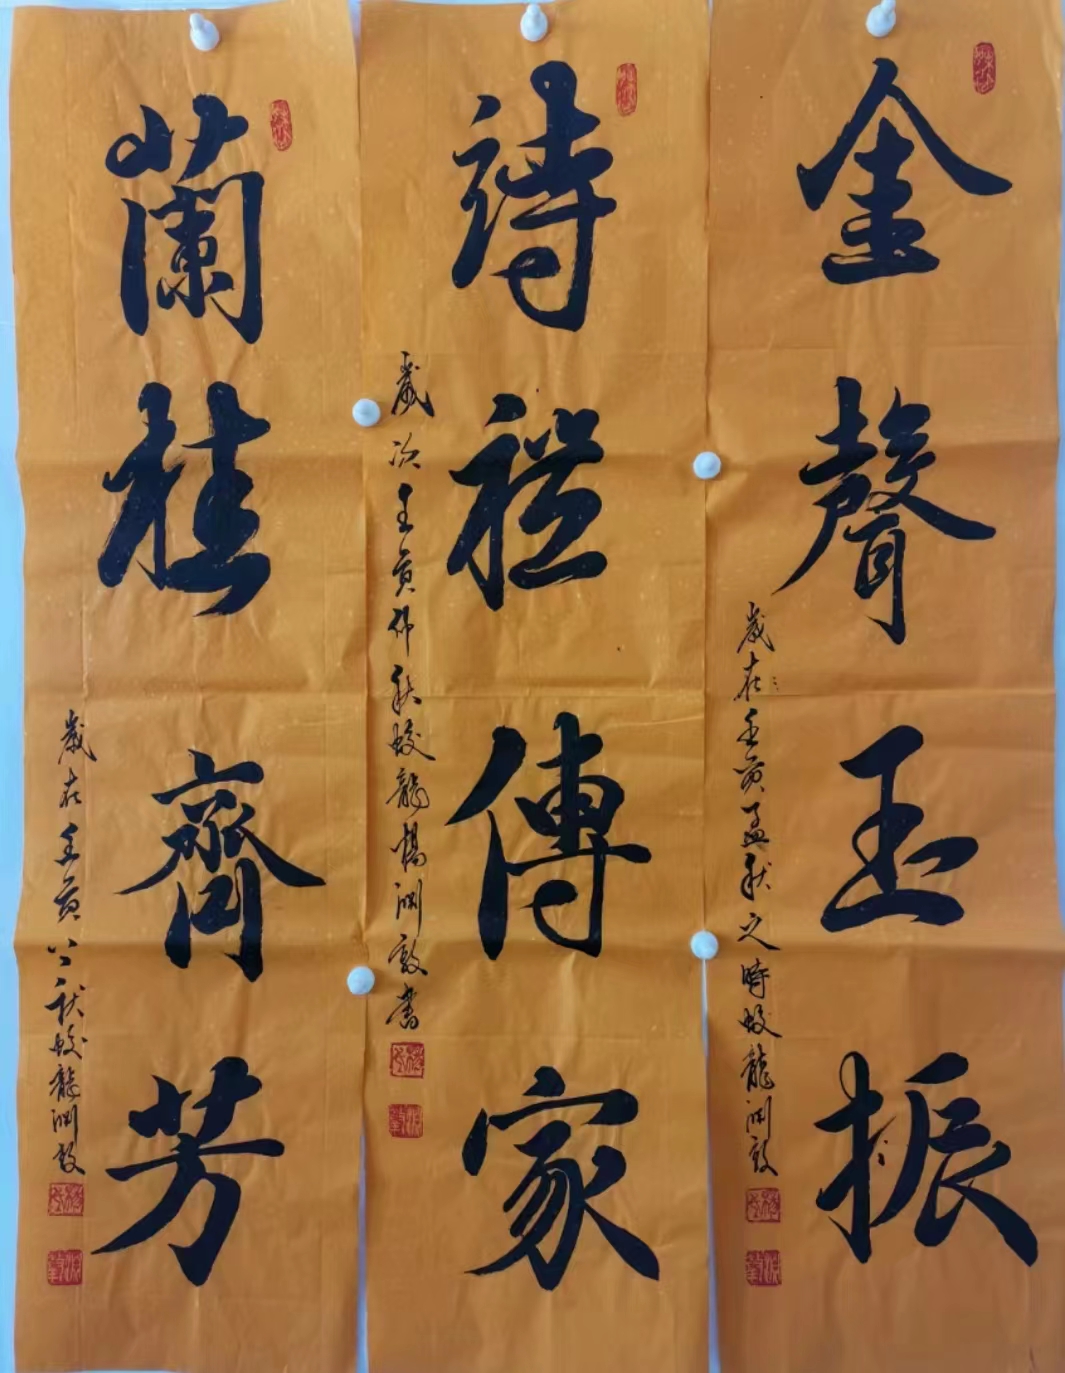 金聲玉振
歲在壬寅孟秋之時蛟龍渊敦
詩禮傳家
歲次壬寅仲秋蛟龍楊渊敦書
蘭桂齊芳
歲在壬寅秋蛟龍渊敦